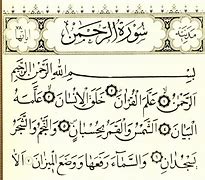 سُورَةُ الرَّحْمٰن
بِسْمِ اللهِ الرَّحْمٰنِ الرَّحِيْمِ
الرَّحْمٰنُ عَلَّمَ الْقُرْاٰنَ خَلَقَ الْاِنْسَانَ عَلَّمَهُ
الْبَيَانَ اَلشَّمْسُ وَالْقَمَرُ بِحُسْبَانٍ وَالنَّجْمُ وَالشَّجَرُ
يَسْجُدَانِ وَالسَّمَآءَ رَفَعَهَا وَوَضَعَ الْمِيْزَانَ اَلَّا